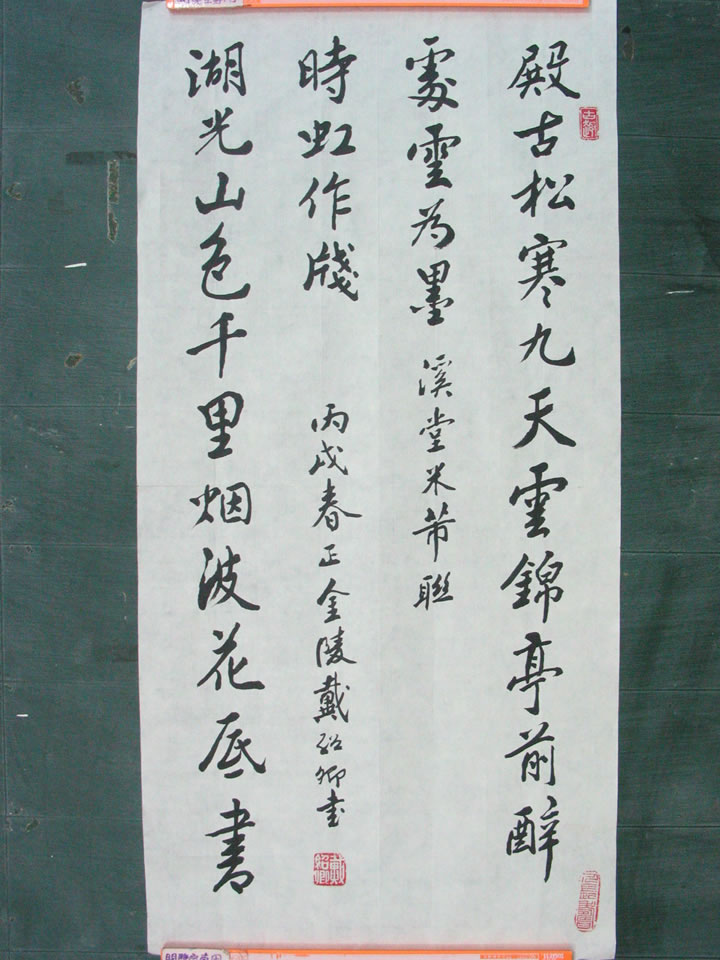 殿古松寒九天雲錦亭前醉
處雲為墨 溪堂米芾聯
時虹作牋 丙戌春正金陵戴紹卿書
湖光山色千里烟波花底書
戴紹卿